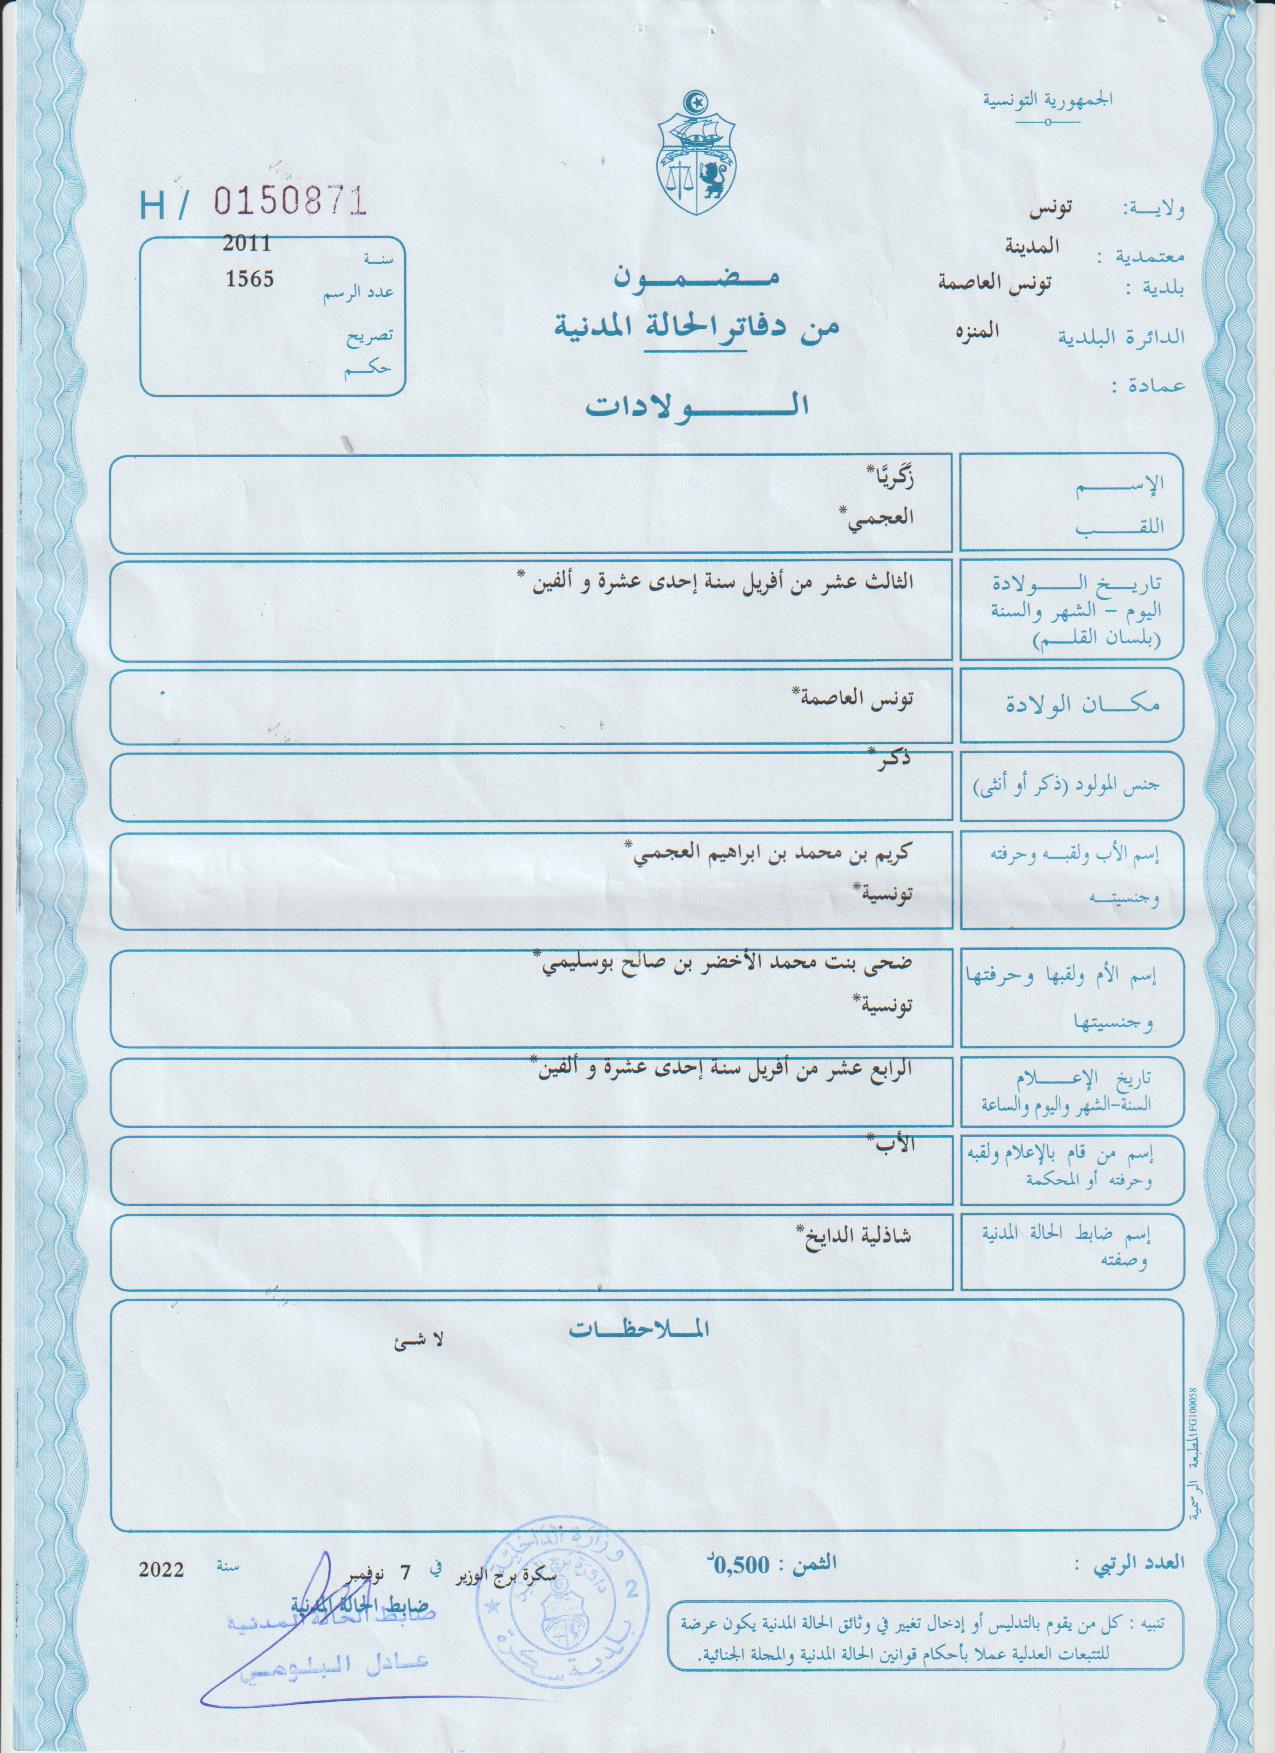 الجمهورية التونسية
ولايـــة: تونس
معتمدية : المدينة
بلدية : تونس العاصمة
الدائرة البلدية المنزه
عمادة :
مـــضـــمـــون
من دفاتر الحالة المدنية
الـــــــولادات
H / 0150871
سنــة 2011
عدد الرسم 1565
تصريح
حكــم
الإســـــم زَكَريَّا*
اللقـــــب العجمي*
تاريـــخ الـــــولادة الثالث عشر من أفريل سنة إحدى عشرة و ألفين *
اليوم – الشهر والسنة
(بلسان القلـــم)
مكـــان الولادة تونس العاصمة*
جنس المولود (ذكر أو أنثى) ذكر*
إسم الأب ولقبــه وحرفته كريم بن محمد بن ابراهيم العجمي*
وجنسيتــه تونسية*
إسم الأم ولقبها وحرفتها ضحى بنت محمد الأخضر بن صالح بوسليمي*
وجنسيتها تونسية*
تاريخ الإعـــــلام الرابع عشر من أفريل سنة إحدى عشرة و ألفين*
السنة-الشهر واليوم والساعة
إسم من قام بالإعلام ولقبه الأب*
وحرفته أو المحكمة
إسم ضابط الحالة المدنية شاذلية الدايخ*
وصفته
المـــلاحظـــات
لا شئ
المطبعة الرسمية FG100058
العدد الرتبي :
الثمن : 0,500د
سكرة برج الوزير في 7 نوفمبر سنة 2022
ضابط الحالة المدنية
ضابط الحالة المدنية
عادل البلومي
وزارة الداخلية
بلدية سكرة
2
تنبيه : كل من يقوم بالتدليس أو إدخال تغيير في وثائق الحالة المدنية يكون عرضة
للتتبعات العدلية عملا بأحكام قوانين الحالة المدنية والمجلة الجنائية.